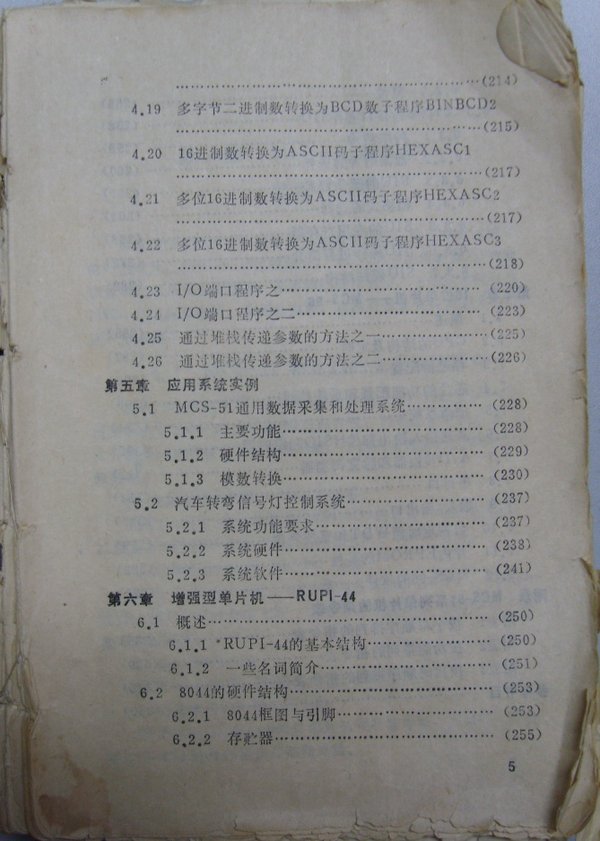 ……………………………………………(214)
4.19 多字节二进制数转换为BCD数子程序BINBCD2
……………………………………………(215)
4.20 16进制数转换为ASCII码子程序HEXASC1
……………………………………………(217)
4.21 多位16进制数转换为ASCII码子程序HEXASC2
……………………………………………(217)
4.22 多位16进制数转换为ASCII码子程序HEXASC3
……………………………………………(218)
4.23 I/O端口程序之一……………………………(220)
4.24 I/O端口程序之二……………………………(223)
4.25 通过堆栈传递参数的方法之一………………(225)
4.26 通过堆栈传递参数的方法之二………………(226)
第五章 应用系统实例
5.1 MCS-51通用数据采集和处理系统……………(228)
5.1.1 主要功能……………………………(228)
5.1.2 硬件结构……………………………(229)
5.1.3 模数转换……………………………(230)
5.2 汽车转弯信号灯控制系统……………………(237)
5.2.1 系统功能要求………………………(237)
5.2.2 系统硬件……………………………(238)
5.2.3 系统软件……………………………(241)
第六章 增强型单片机——RUPI-44
6.1 概述……………………………………………(250)
6.1.1 RUPI-44的基本结构…………………(250)
6.1.2 一些名词简介………………………(251)
6.2 8044的硬件结构………………………………(253)
6.2.1 8044框图与引脚……………………(253)
6.2.2 存贮器………………………………(255)
5